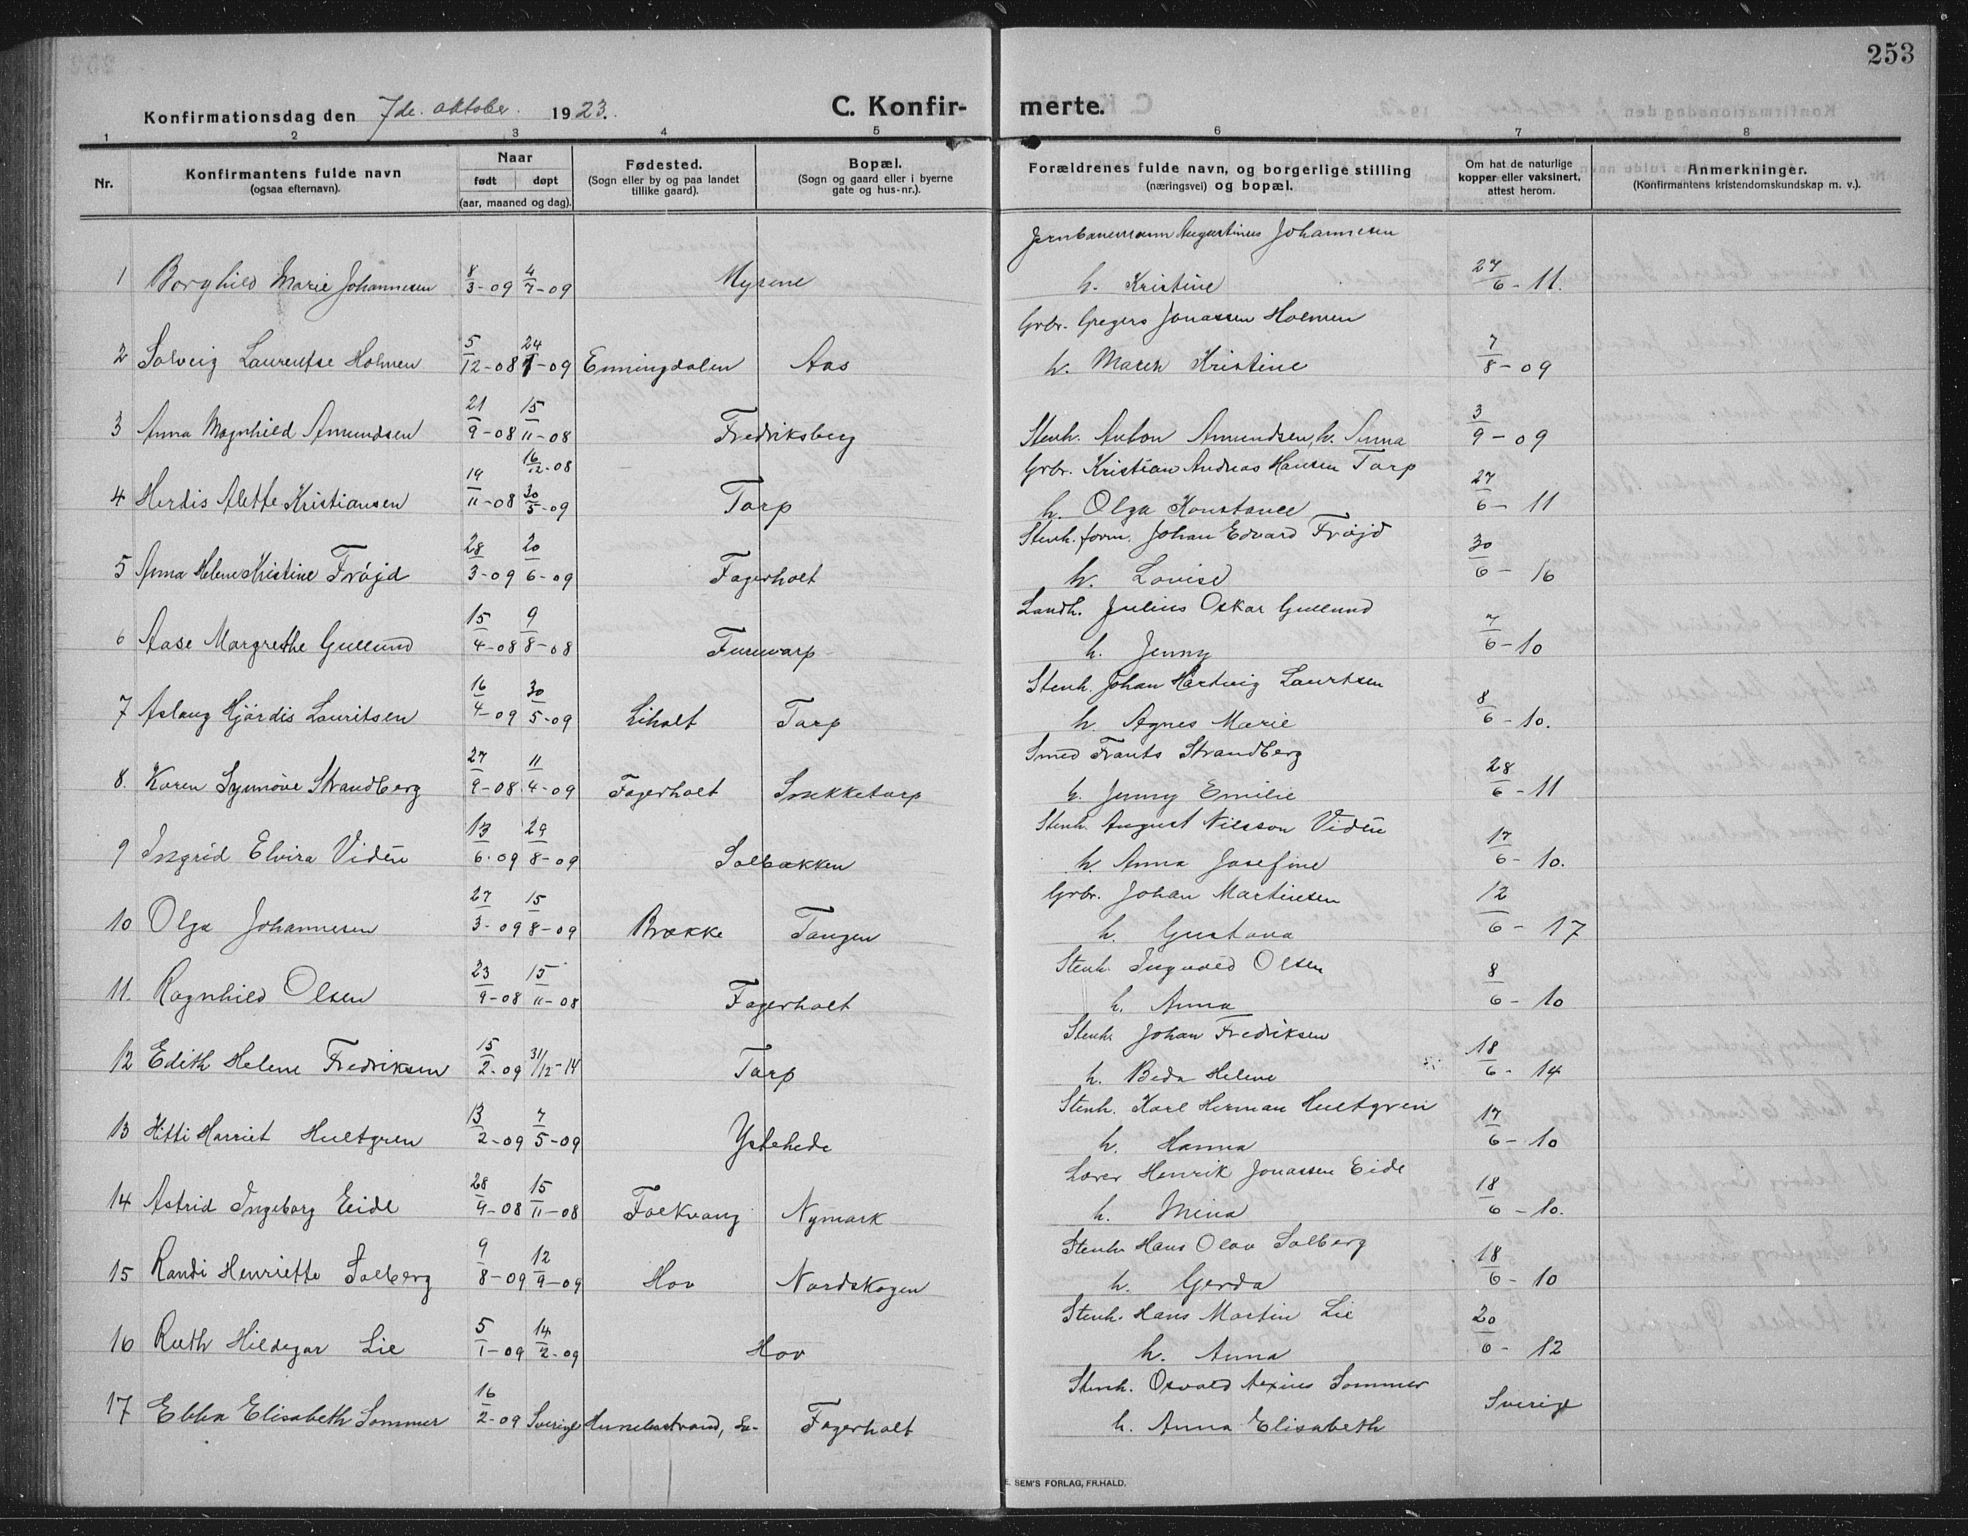 253
Konfirmationsdag den 7de. oktober 1923. C. Konfirmerte.
1 2 3 4 5 6 7 8
Nr. Konfirmantens fulde navn (ogsaa efternavn). Naar født døpt (aar, maaned og dag). Fødested. (Sogn eller by og paa landet tillike gaard). Bopæl. (Sogn og gaard eller i byerne gate og hus-nr.). Forældrenes fulde navn, og borgerlige stilling (næringsvei) og bopæl. Om hat de naturlige kopper eller vaksinert, attest herom. Anmerkninger. (Konfirmantens kristendomskundskap m. v.).
Jernbanemann Augustinus Johannesen
1 Borghild Marie Johannesen 8/3-09 4/7-09 Mysene h. Kristine 27/6-11.
Grbr. Gregers Jonassen Holmen
2 Solveig Laurentse Holmen 5/12-08 24/1-09 Enningdalen Aas h. Maren Kristine 7/8-09
3 Anna Magnhild Amundsen 21/9-08 15/11-08 Fredriksberg Stenh. Anton Amundsen, h. Sinna 3/9-09
16/12-08 Grbr. Kristian Andreas Hansen Torp
4 Herdis Alette Kristiansen 19/11-08 30/5-09 Torp h. Olga Konstance 27/6-11
Stenh. form. Johan Edvard Frøjd
5 Anna Helene Kristine Frøjd 28/3-09 20/6-09 Fagerholt h. Lovise 30/6-16
Landh. Julius Oskar Gullund
6 Aase Margrethe Gullund 15/4-08 9/8-08 Furuvarp h. Jenny 7/6-10
Stenh. Johan Hartvig Lauritsen
7 Aslaug Hjördis Lauritsen 16/4-09 30/5-09 Liholt Torp h. Agnes Marie 8/6-10.
Smed Frants Strandberg
8. Karen Synnøve Strandberg 27/9-08 11/4-09 Fagerholt Snekketorp h. Jenny Emilie 28/6-11
Stenh. August Nilsson Vidén
9 Ingrid Elvira Vidén 13/6-09 29/8-09 Solbakken h. Anna Josefine 17/6-10.
Grbr. Johan Martinesen
10 Olga Johannesen 27/3-09 15/8-09 Brække Tangen h. Gustava 12/6-17
Stenh. Ingvald Olsen
11. Ragnhild Olsen 23/9-08 15/11-08 Fagerholt h. Anna 8/6-10
Stenh. Johan Fredriksen
12 Edith Helene Fredriksen 15/2-09 31/12-14 Torp h. Beda Helene 18/6-14
Stenh. Karl Herman Hultgren
13 Hitti Harriet Hultgren 13/2-09 7/5-09 Ystehede h. Hanna 17/6-10
Lærer Henrik Jonassen Eide
14 Astrid Ingeborg Eide 28/9-08 15/11-08 Folkvang Nymark h. Mina 18/6-10.
Stenh. Hans Olav Solberg
15 Randi Henriette Solberg 9/8-09 12/9-09 Hov Nordskogen h. Gerda 18/6-10
Stenh. Hans Martin Lie
16 Ruth Hildegar Lie 5/1-09 14/2-09 Hov h. Anna 20/6-12
Stenh. Osvald Sommer
17 Ebba Elisabeth Sommer 16/2-09 Sverige Hunebostrand, Sv- Fagerholt h. Anna Elisabeth Sverige
E. SEM'S FORLAG, FR.HALD.